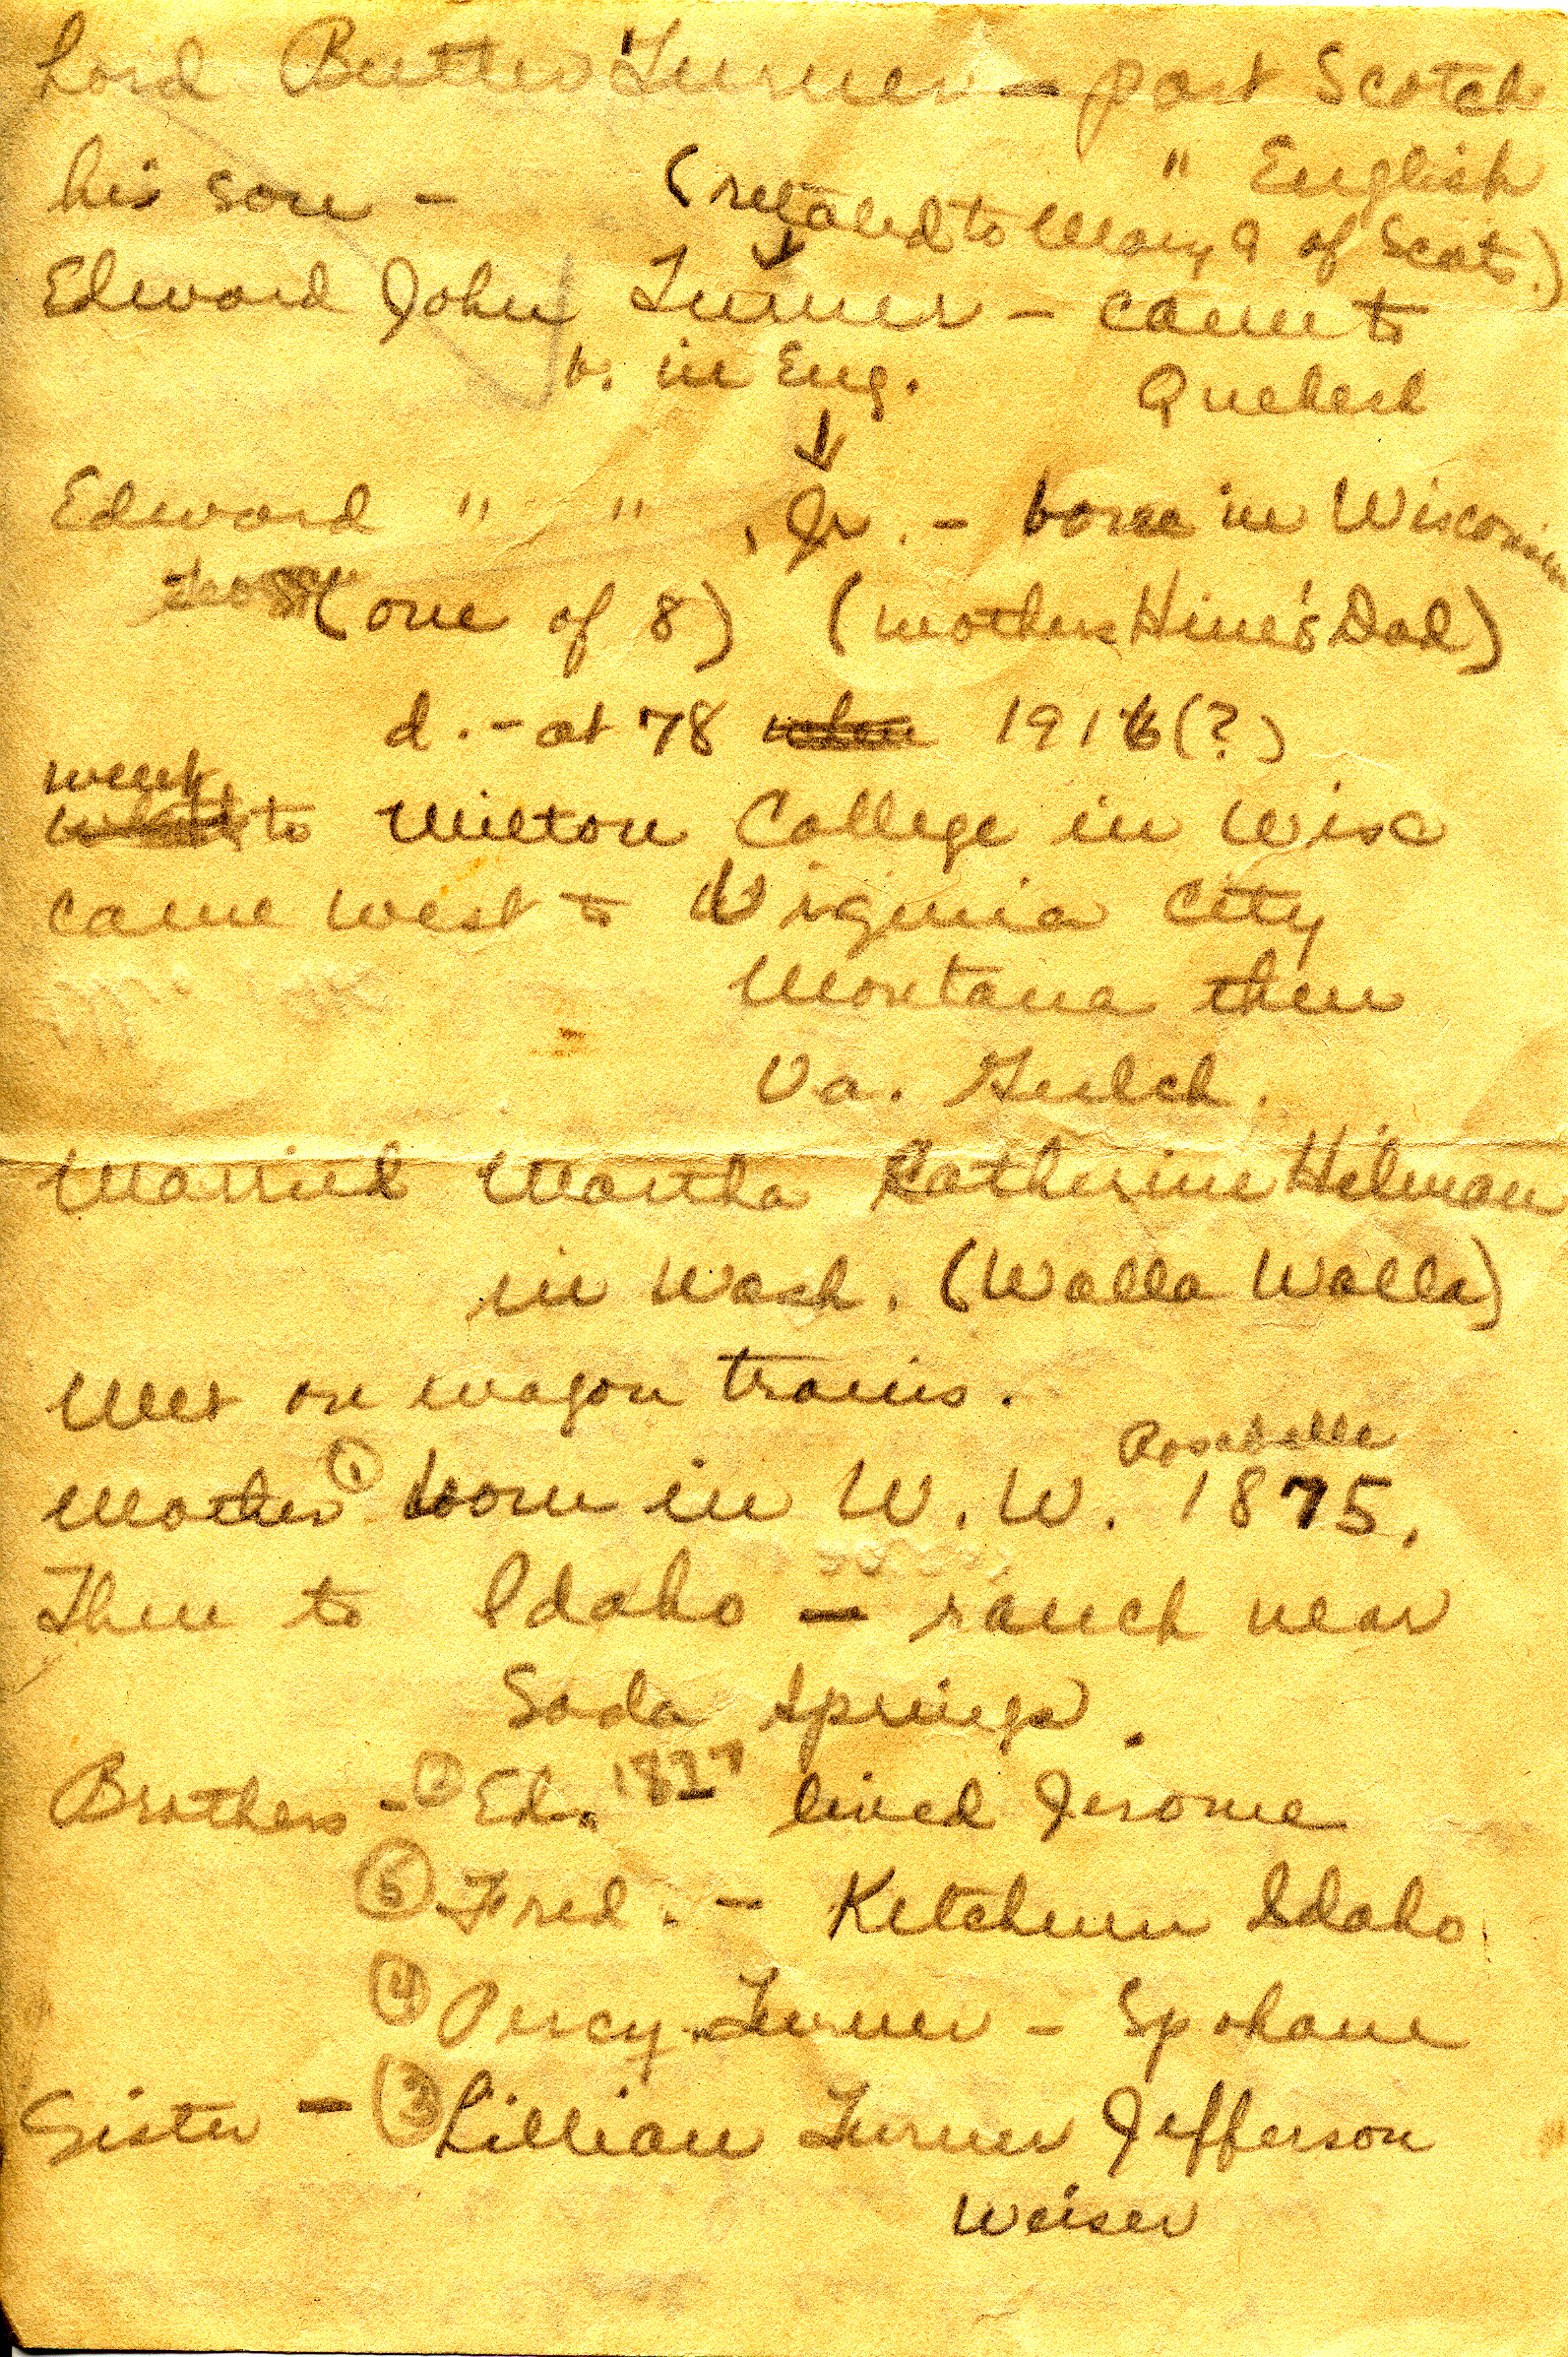 Lord Butler Turner - part Scotch
" English
his son - (related to Mary Q of Scots.)
Edward John Turner - came to
b. in Eng. Quebeck
Edward " " , Jr. - born in Wisconsin
(one of 8) (mother Hine's Dad)
d. - at 78 1916(?)
went
to Milton College in Wisc
came west to Virginia City
Montana then
Va. Gulch.
Married Martha Catherine Hilman
in Wash. (Walla Walla)
Met on wagon trains.
Rosebelle
Mother ① born in W. W. 1875.
Then to Idaho - ranch near
Soda Springs.
Brothers - ② Ed. 1877 lived Jerome
⑤ Fred. - Ketchum Idaho
④ Percy Turner - Spokane
Sister - ③ Lillian Turner Jefferson
Weiser